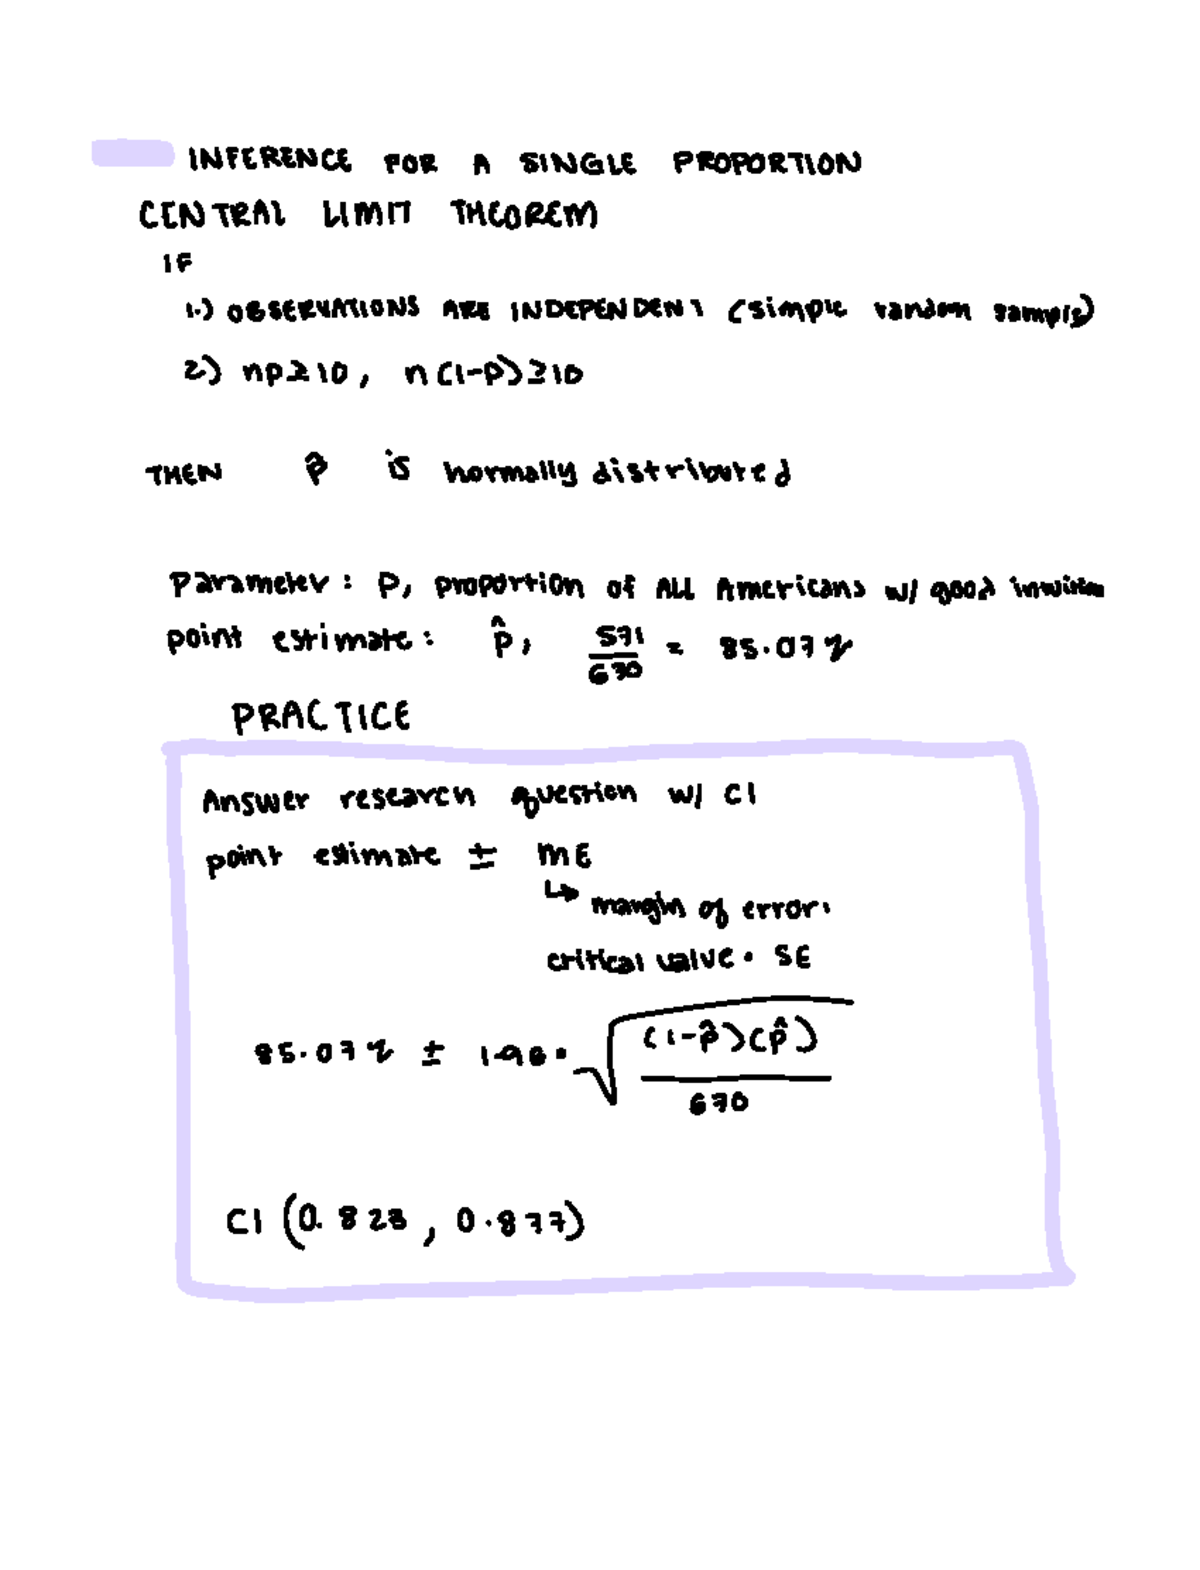 INFERENCE FOR A SINGLE PROPORTION
CENTRAL LIMIT THEOREM
IF
1.) OBSERVATIONS ARE INDEPENDENT (simple random sample)
2) np≥10, n(1-p)≥10
THEN p̂ is normally distributed
Parameter: p, proportion of ALL Americans w/ good intuition
point estimate: p̂, 571/670 = 85.07%
PRACTICE
Answer research question w/ CI
point estimate ± ME
↳ margin of error:
critical value • SE
85.07% ± 1.96 • √((1-p̂)(p̂)/670)
CI (0.823, 0.877)